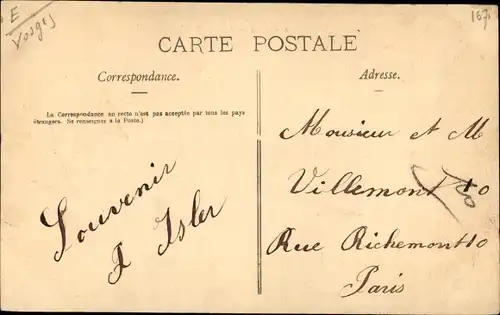 E
Vosges
167
CARTE POSTALE
Correspondance.
La Correspondance au recto n'est pas acceptée par tous les pays
étrangers. Se renseigner à la Poste.)
Souvenir
F Isler
Adresse.
Monsieur et M
Villemont
Rue Richemont 10
Paris